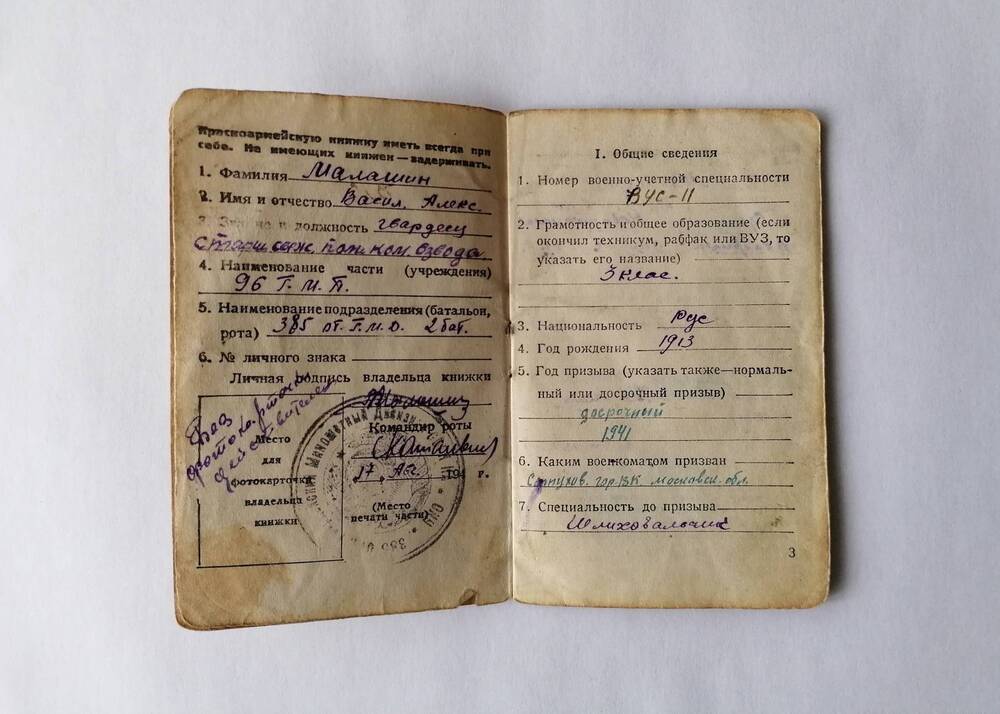 Красноармейскую книжку иметь всегда при
себе. Не имеющих книжек — задерживать.
1. Фамилия Малашин
2. Имя и отчество Васил. Алекс.
3. Звание и должность гвардеец
старш. сяж. пом. ком. взвода
4. Наименование части (учреждения)
96 Г. М. П.
5. Наименование подразделения (батальон,
рота) 385 от. Г. М. Д. 2 бат.
6. № личного знака
Личная подпись владельца книжки
Малашин
Без
фотокарточки
действителен
Место
для
фотокарточки
владельца
книжки
Командир роты
17. Авг. 194 г.
(Место
печати части)
Минометный Дивизи
385
I. Общие сведения
1. Номер военно-учетной специальности
ВУС-11
2. Грамотность и общее образование (если
окончил техникум, рабфак или ВУЗ, то
указать его название)
3 клас.
3. Национальность Рус
4. Год рождения 1913
5. Год призыва (указать также—нормаль-
ный или досрочный призыв)
досрочный
1941
6. Каким военкоматом призван
Серпухов. гор. ВК московск. обл.
7. Специальность до призыва
Шлиховальщик
3